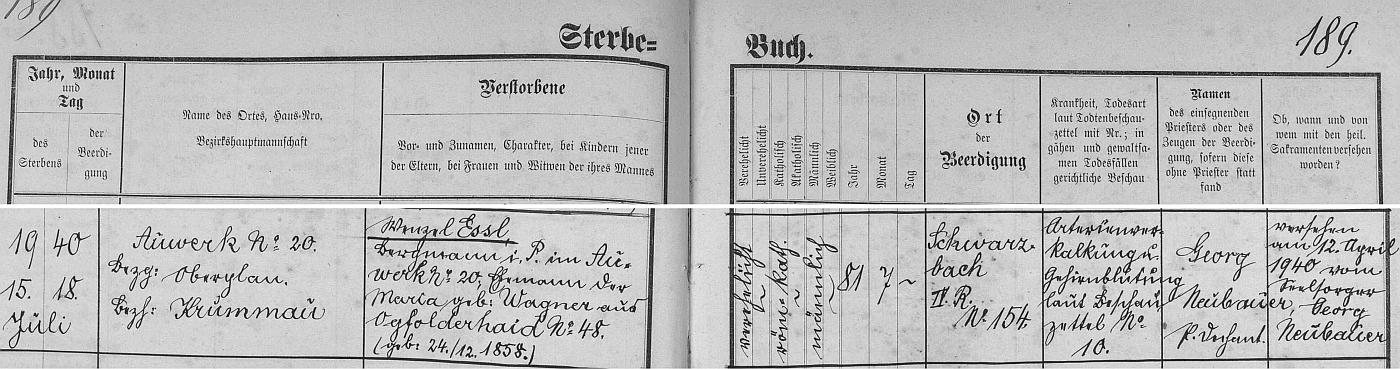 189
Sterbe=
Buch.
189.
Jahr, Monat
und
Tag
des
Sterbens
der
Beerdi-
gung
Name des Ortes, Haus-Nro.
Bezirkshauptmannschaft
Verstorbene
Vor- und Zunamen, Charakter, bei Kindern jener
der Eltern, bei Frauen und Witwen der ihres Mannes
Verehelicht
Unverehelicht
Katholisch
Akatholisch
Männlich
Weiblich
Jahr
Monat
Tag
Ort
der
Beerdigung
Krankheit, Todesart
laut Todtenbeschau-
zettel mit Nr.; in
gähen und gewaltsa-
men Todesfällen
gerichtliche Beschau
Namen
des einsegnenden
Priesters oder des
Zeugen der Beerdi-
gung, sofern diese
ohne Priester statt
fand
Ob, wann und von
wem mit den heil.
Sakramenten versehen
worden?
19 40
15. 18.
Juli
Auwerk No 20.
Bezg: Oberplan.
Bezh: Krummau
Wenzel Essl,
Bergmann i. P. im Au-
werk No 20, Ehemann der
Maria geb: Wagner aus
Ogfolderhaid No 48.
(geb: 24./12. 1858.)
verehelicht
~
röm. kath.
~
männlich
~
81
7
~
Schwarz-
bach
II. R.
No 154.
Arterienver-
kalkung u.
Gehirnblutung
laut Beschau-
zettel No
10.
Georg
Neubauer,
p. Dechant.
versehen
am 12. April
1940 vom
Seelsorger
Georg
Neubauer